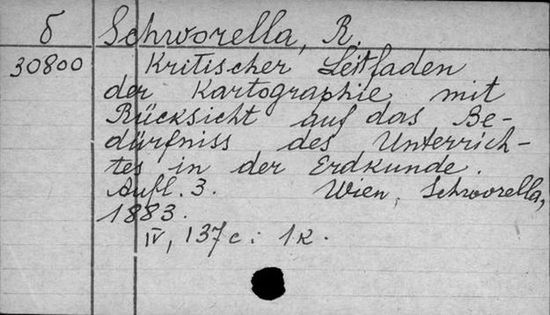 б Schworella, R.
30800 Kritischer Leitfaden
der Kartographie mit
Rücksicht auf das Be-
dürfniss des Unterrich-
tes in der Erdkunde.
Aufl. 3. Wien, Schworella,
1883.
IV, 137 c.: 1 к.